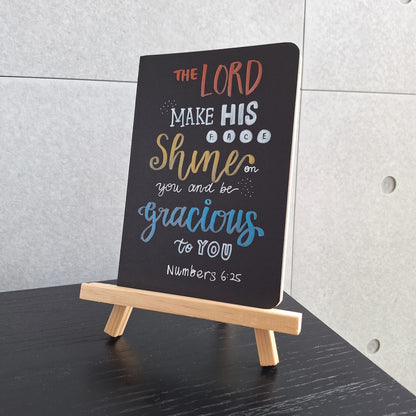 THE LORD
MAKE HIS
FACE
Shine on
you and be
gracious
to YOU
Numbers 6:25